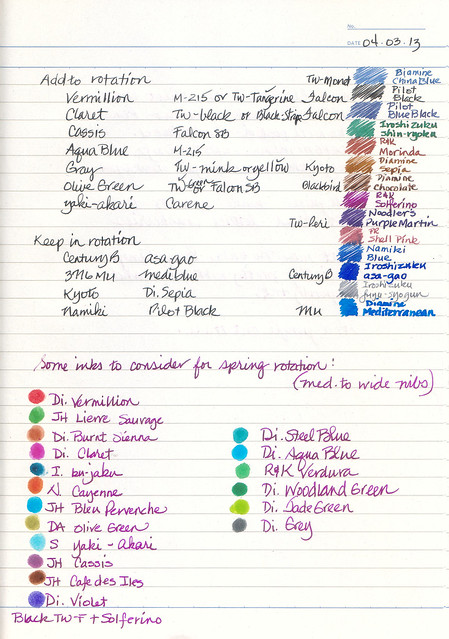 No.
DATE 04.03.13
Add to rotation
Vermillion M-215 or TW-Tangerine Falcon
Claret TW-black or Black Strap Falcon
Cassis Falcon SB
Aqua Blue M-215
Gray TW-mink or yellow Kyoto
Olive Green TW Green or Falcon SB Blackbird
yaki-akari Carene
Keep in rotation
Century B asa-gao
3776 MU medi blue
Kyoto Di. Sepia
Namiki Pilot Black
TW-Mond Diamine China Blue
Pilot Black
Pilot Blue Black
Iroshizuku Shin-ryoku
R&K Morinda
Diamine Sepia
Diamine Chocolate
R&K Solferino
TW-Peri Noodlers Purple Martin
PR Shell Pink
Namiki Blue
Century B Iroshizuku asa-gao
Iroshizuku fuyu-syogun
MU Diamine Mediterranean
Some inks to consider for spring rotation:
(med. to wide nibs)
Di. Vermillion
JH Lierre Sauvage
Di. Burnt Sienna
Di. Claret
I. ku-jaku
N. Cayenne
JH Bleu Pervenche
DA Olive Green
S yaki-akari
JH Cassis
JH Cafe des Iles
Di. Violet
Di. Steel Blue
Di. Aqua Blue
R&K Verdura
Di. Woodland Green
Di. Jade Green
Di. Grey
Black TW-F + Solferino